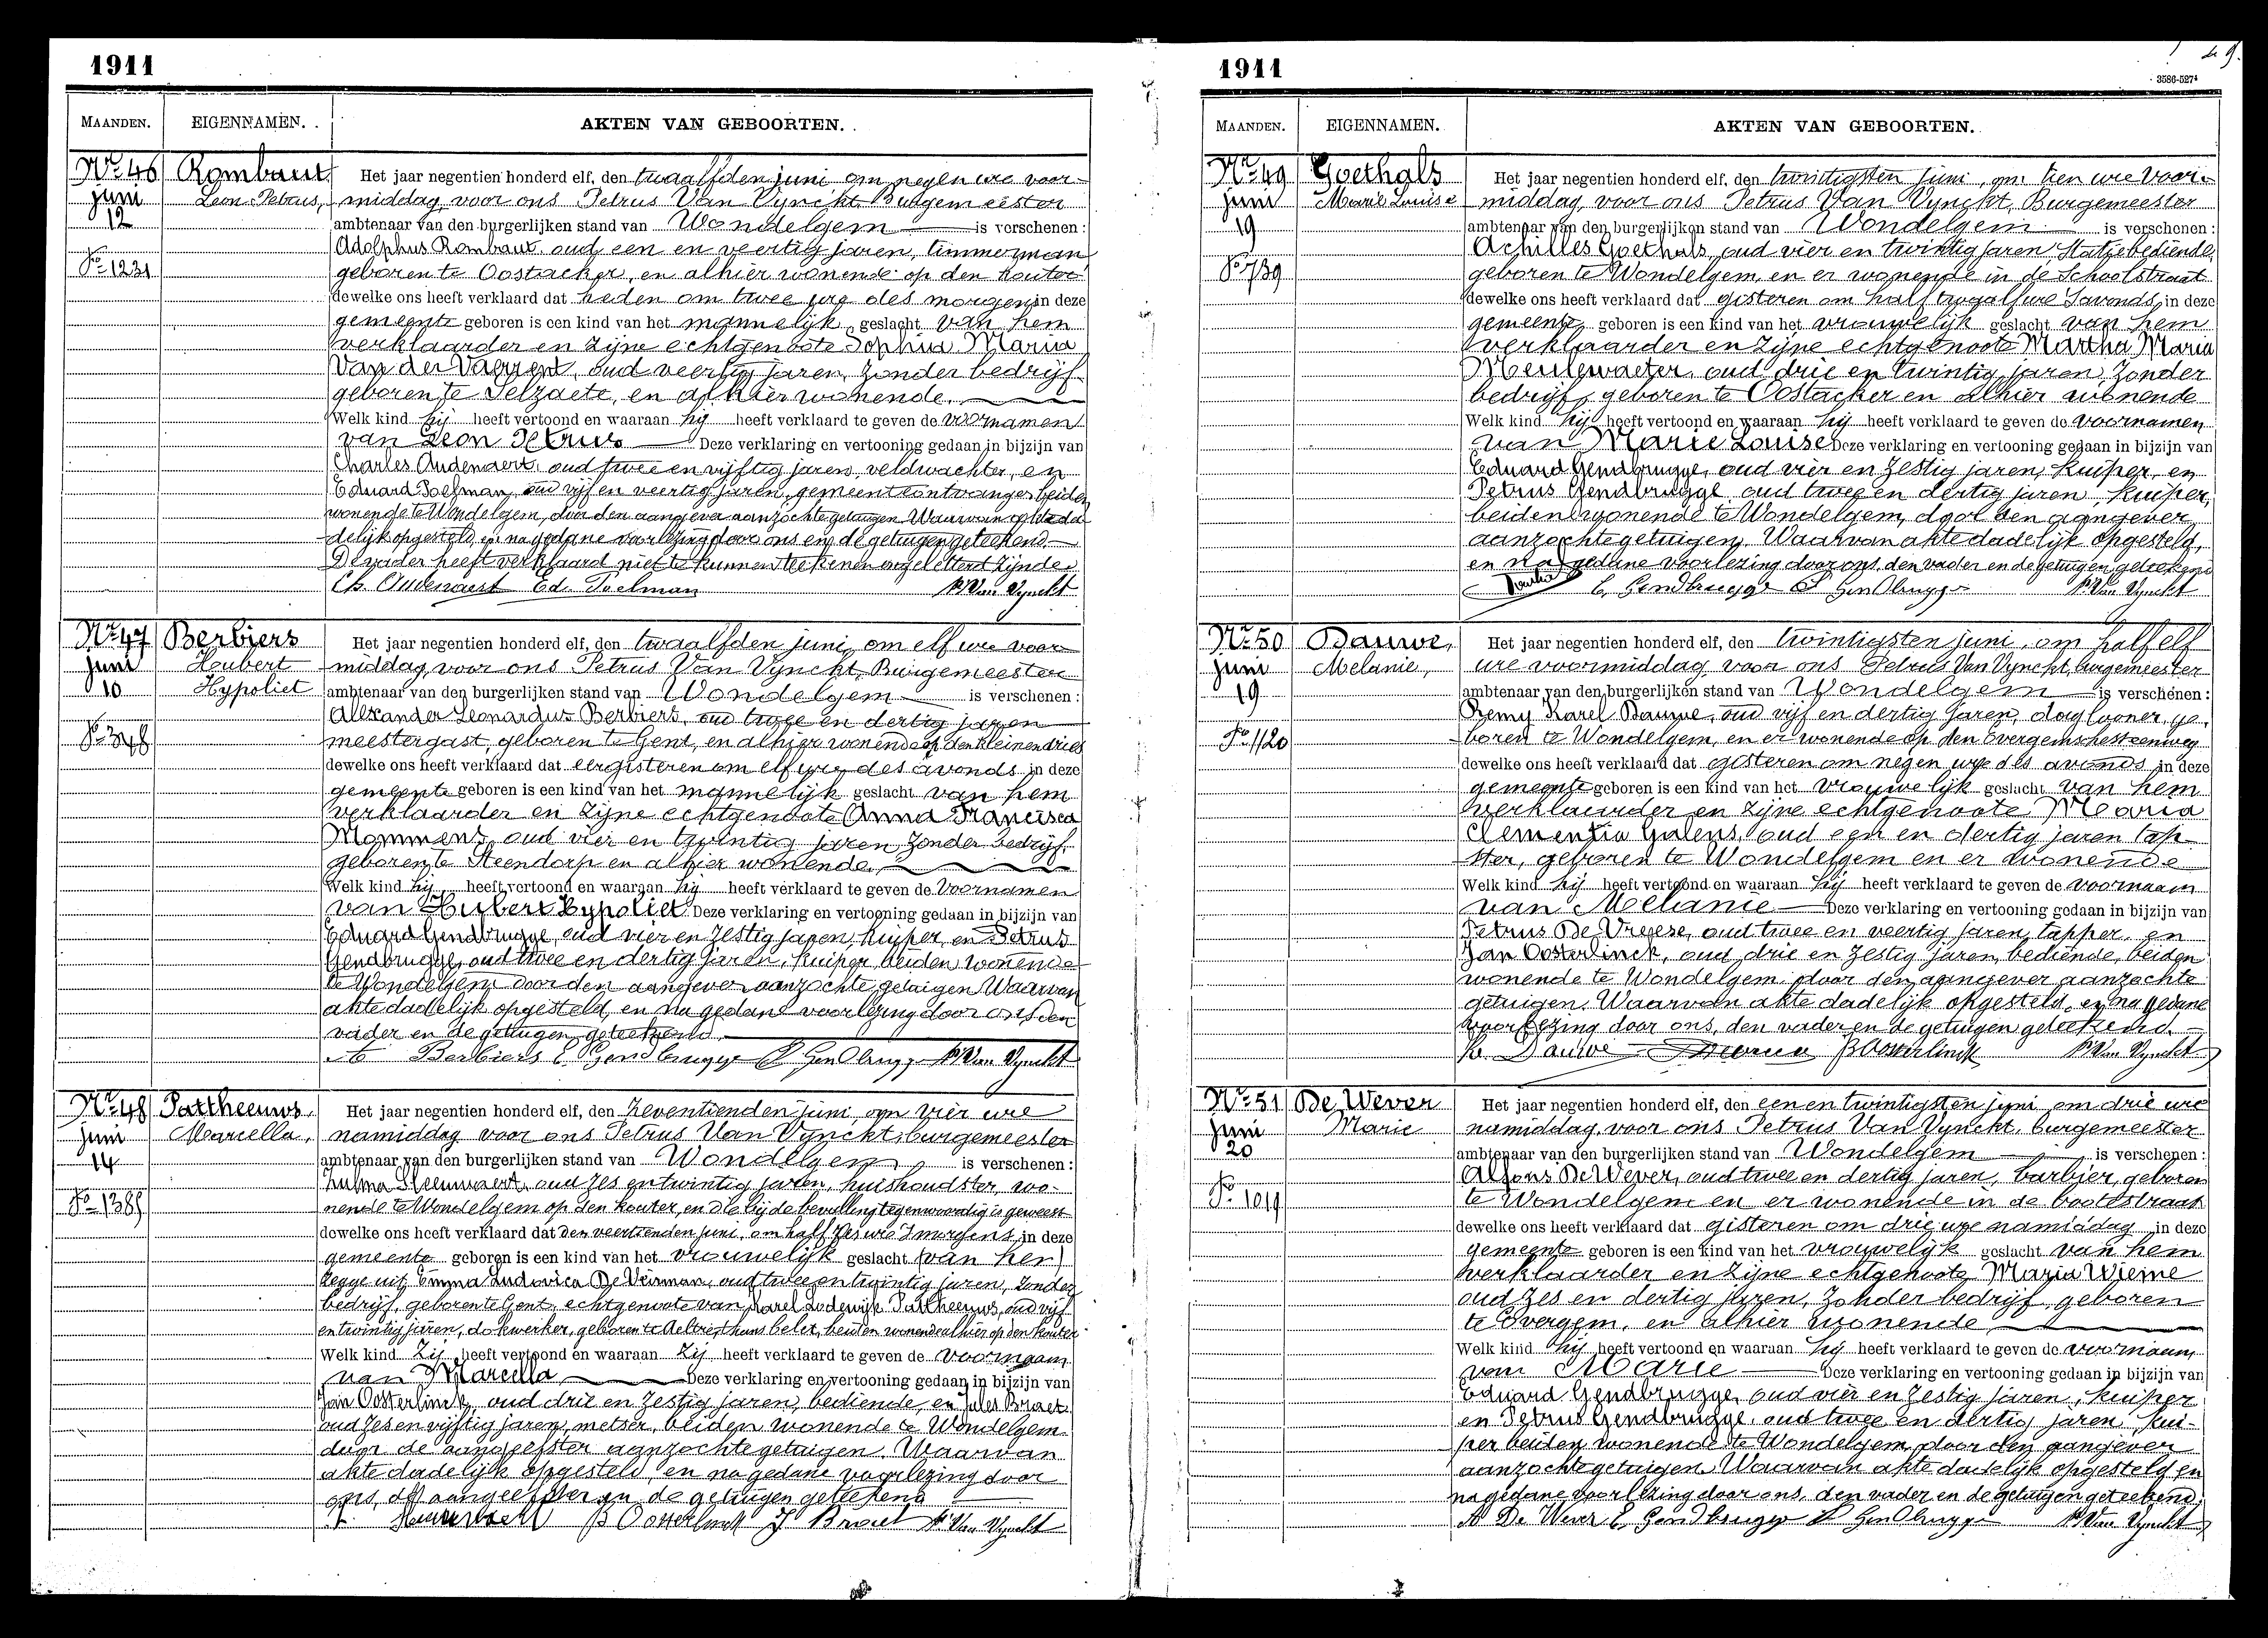 1911
MAANDEN. EIGENNAMEN. AKTEN VAN GEBOORTEN.
No 46 Rombaut Het jaar negentien honderd elf, den twaalfden juni om negen ure voor-
juni Leon Petrus, middag, voor ons Petrus Van Vynckt, Burgemeester
12 ambtenaar van den burgerlijken stand van Wondelgem is verschenen:
Adolphus Rombaut oud een en veertig jaren, timmerman
No 1231 geboren te Oostacker, en alhier wonende op den Kouter
dewelke ons heeft verklaard dat heden om twee ure des morgens in deze
gemeente geboren is een kind van het mannelijk geslacht van hem
verklaarder en zijne echtgenoote Sophia Maria
Van der Vaerent, oud veertig jaren, zonder bedrijf
geboren te Selzaete, en alhier wonende.
Welk kind hij heeft vertoond en waaraan hij heeft verklaard te geven de voornamen
van Leon Petrus Deze verklaring en vertooning gedaan in bijzijn van
Charles Oudenaert, oud twee en vijftig jaren, veldwachter, en
Eduard Poelman, oud vijf en veertig jaren, gemeenteontvanger, beiden
wonende te Wondelgem, door den aangever aanzochte getuigen. Waarvan akte da-
delijk opgesteld, en na gedane voorlezing door ons en de getuigen geteekend.
De vader heeft verklaard niet te kunnen teekenen ongeletterd zijnde.
Ch. Oudenaert Ed. Poelman P. Van Vynckt
No 47 Berbiers Het jaar negentien honderd elf, den twaalfden juni, om elf ure voor
juni Houbert middag, voor ons Petrus Van Vynckt, Burgemeester
10 Hypoliet ambtenaar van den burgerlijken stand van Wondelgem is verschenen:
Alexander Leonardus Berbiers, oud twee en dertig jaren
No 348 meestergast, geboren te Gent, en alhier wonende op den Kleinen dries
dewelke ons heeft verklaard dat eergisteren om elf ure des avonds in deze
gemeente geboren is een kind van het mannelijk geslacht van hem
verklaarder en zijne echtgenoote Anna Francisca
Mommens, oud vier en twintig jaren zonder bedrijf,
geboren te Steendorp en alhier wonende.
Welk kind hij heeft vertoond en waaraan hij heeft verklaard te geven de voornamen
van Hubert Hypoliet Deze verklaring en vertooning gedaan in bijzijn van
Eduard Gendbrugge, oud vier en zestig jaren, kuiper, en Petrus
Gendbrugge, oud twee en dertig jaren, kuiper, beiden wonende
te Wondelgem door den aangever aanzochte getuigen Waarvan
akte dadelijk opgesteld, en na gedane voorlezing door ons den
vader en de getuigen geteekend.
A Berbiers E Gendbrugge P Gendbrugge P. Van Vynckt
No 48 Pattheeuws Het jaar negentien honderd elf, den zeventienden juni, om vier ure
juni Marcella, namiddag voor ons Petrus Van Vynckt, burgemeester
14 ambtenaar van den burgerlijken stand van Wondelgem is verschenen:
oud zes en twintig jaren, huishoudster, wo-
No 1385 nende te Wondelgem op den Kouter, en die bij de bevalling tegenwoordig is geweest
dewelke ons heeft verklaard dat den veertienden juni, om half zes ure 's morgens in deze
gemeente geboren is een kind van het vrouwelijk geslacht (van hem)
zegge uit Emma Ludovica De Veirman, oud twee en twintig jaren, zonder
bedrijf, geboren te Gent, echtgenoote van Karel Lodewijk Pattheeuws, oud vijf
en twintig jaren, dokwerker, geboren te Aeltre, thans belet, beiden wonende alhier op den Kouter
Welk kind zij heeft vertoond en waaraan zij heeft verklaard te geven de voornaam
van Marcella Deze verklaring en vertooning gedaan in bijzijn van
Jan Oosterlinck, oud drie en zestig jaren, bediende, en Jules Braet
oud zes en vijftig jaren, metser, beiden wonende te Wondelgem
door de aangeefster aanzochte getuigen. Waarvan
akte dadelijk opgesteld, en na gedane voorlezing door
ons, de aangeefster en de getuigen geteekend
B Oosterlinck J Braet P. Van Vynckt
1911 49.
3586-527⁴
MAANDEN. EIGENNAMEN. AKTEN VAN GEBOORTEN.
No 49 Goethals Het jaar negentien honderd elf, den twintigsten juni, om tien ure voor-
juni Marie Louise middag, voor ons Petrus Van Vynckt, Burgemeester
19 ambtenaar van den burgerlijken stand van Wondelgem is verschenen:
Achilles Goethals, oud vier en twintig jaren Statiebediende,
No 739 geboren te Wondelgem, en er wonende in de Schoolstraat
dewelke ons heeft verklaard dat gisteren om half twaalf ure 's avonds, in deze
gemeente geboren is een kind van het vrouwelijk geslacht van hem
verklaarder en zijne echtgenoote Martha Maria
Meulewaeter, oud drie en twintig jaren, zonder
bedrijf, geboren te Oostacker en alhier wonende
Welk kind hij heeft vertoond en waaraan hij heeft verklaard te geven de voornamen
van Marie Louise Deze verklaring en vertooning gedaan in bijzijn van
Eduard Gendbrugge, oud vier en zestig jaren, kuiper, en
Petrus Gendbrugge, oud twee en dertig jaren, kuiper,
beiden wonende te Wondelgem, door den aangever
aanzochte getuigen. Waarvan akte dadelijk opgesteld,
en na gedane voorlezing door ons, den vader en de getuigen geteekend
E. Gendbrugge P Gendbrugge P. Van Vynckt
No 50 Dauwe, Het jaar negentien honderd elf, den twintigsten juni, om half elf
juni Melanie, ure voormiddag voor ons Petrus Van Vynckt, burgemeester
19 ambtenaar van den burgerlijken stand van Wondelgem is verschenen:
Remy Karel Dauwe, oud vijf en dertig jaren, daglooner, ge-
No 1120 boren te Wondelgem, en er wonende op den Evergemschesteenweg
dewelke ons heeft verklaard dat gisteren om negen ure des avonds in deze
gemeente geboren is een kind van het vrouwelijk geslacht van hem
verklaarder en zijne echtgenoote Maria
Clementia Galens, oud een en dertig jaren tap-
ster, geboren te Wondelgem en er wonende
Welk kind hij heeft vertoond en waaraan hij heeft verklaard te geven de voornaam
van Melanie Deze verklaring en vertooning gedaan in bijzijn van
Petrus De Vreese, oud twee en veertig jaren, tapper, en
Jan Oosterlinck, oud drie en zestig jaren, bediende, beiden
wonende te Wondelgem door den aangever aanzochte
getuigen. Waarvan akte dadelijk opgesteld, en na gedane
voorlezing door ons, den vader en de getuigen geteekend.
R. Dauwe B Oosterlinck P. Van Vynckt
No 51 De Wever Het jaar negentien honderd elf, den een en twintigsten juni om drie ure
juni Marie namiddag, voor ons Petrus Van Vynckt, burgemeester
20 ambtenaar van den burgerlijken stand van Wondelgem is verschenen:
Alfons De Wever, oud twee en dertig jaren, barbier, geboren
No 1019 te Wondelgem en er wonende in de bootestraat
dewelke ons heeft verklaard dat gisteren om drie ure namiddag in deze
gemeente geboren is een kind van het vrouwelijk geslacht van hem
verklaarder en zijne echtgenoote Maria Wieme
oud zes en dertig jaren, zonder bedrijf, geboren
te Evergem, en alhier wonende
Welk kind hij heeft vertoond en waaraan hij heeft verklaard te geven de voornaam
van Marie Deze verklaring en vertooning gedaan in bijzijn van
Eduard Gendbrugge, oud vier en zestig jaren, kuiper
en Petrus Gendbrugge, oud twee en dertig jaren, kui-
per beiden wonende te Wondelgem, door den aangever
aanzochte getuigen. Waarvan akte dadelijk opgesteld en
na gedane voorlezing door ons, den vader en de getuigen geteekend.
A De Wever E Gendbrugge P Gendbrugge P. Van Vynckt